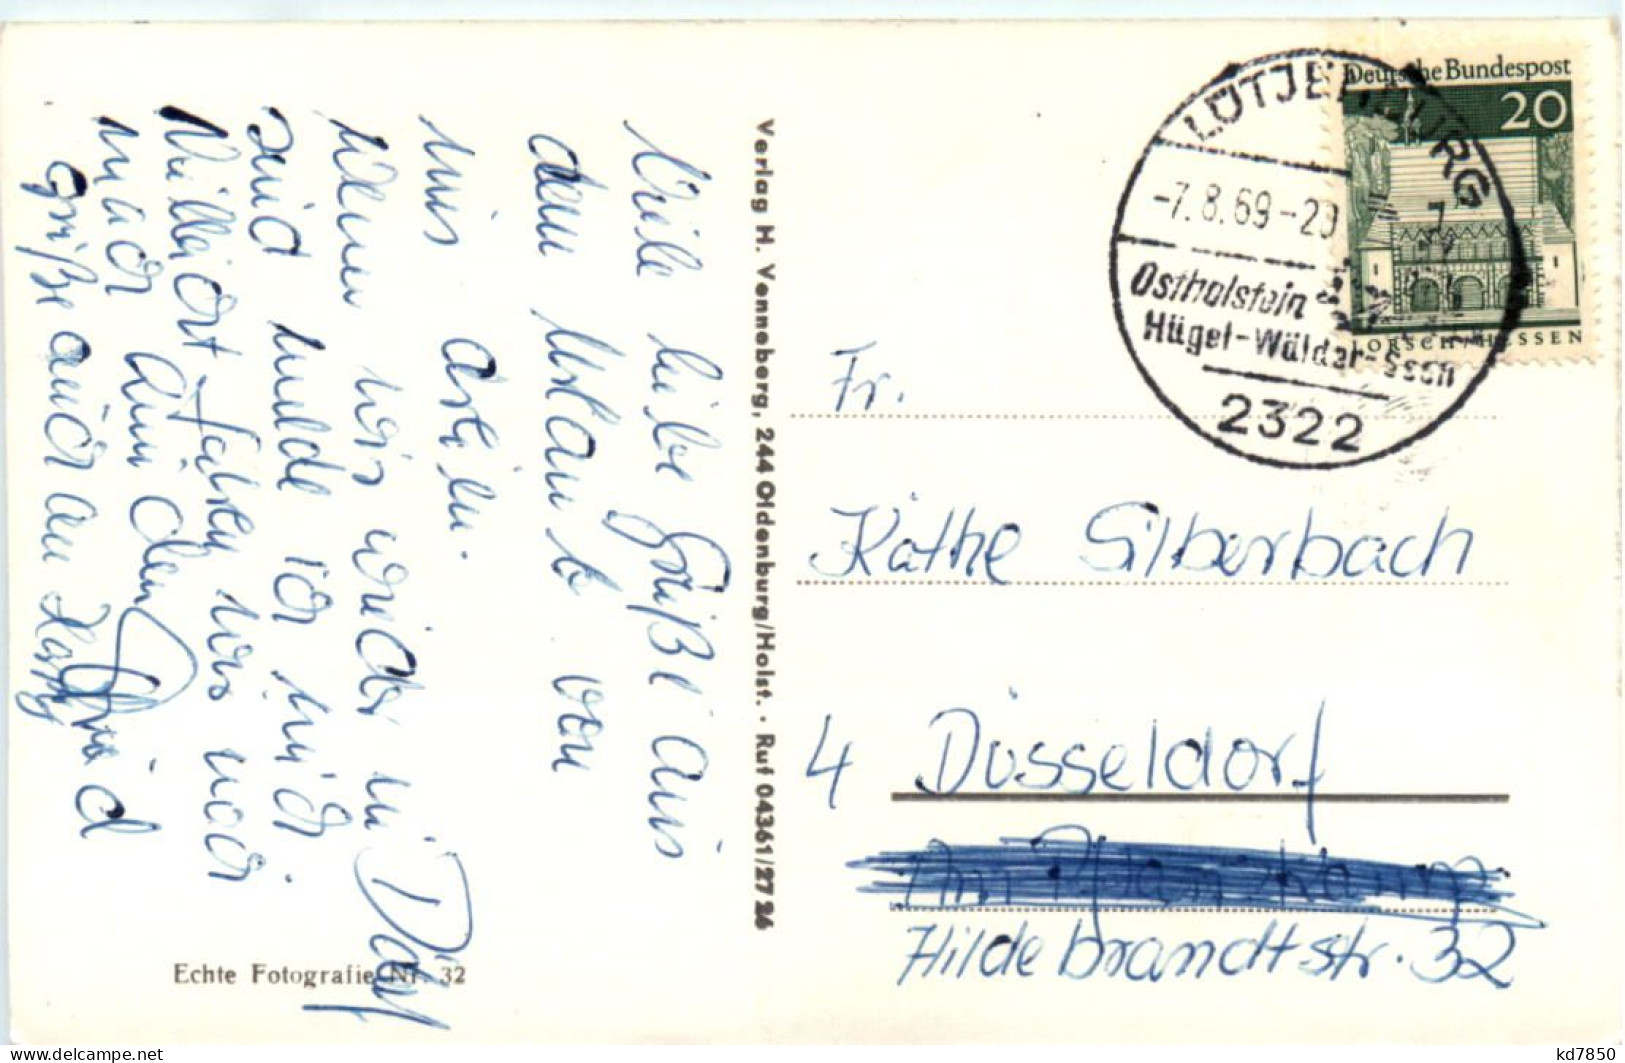 Viele liebe Grüße aus
dem Urlaub von
uns
Wenn wir wieder in D'dorf
sind melde ich mich.
Vielleicht fahren wir noch
nach
Grüße auch an
Echte Fotografie Nr. 32
Verlag H. Venneberg, 244 Oldenburg/Holst. · Ruf 04361/27 26
Deutsche Bundespost
20
LORSCH/HESSEN
LÜTJENBURG
-7.8.69-20
Ostholstein
Hügel-Wälder-Seen
2322
Fr.
Käthe Silberbach
4 Düsseldorf
Hildebrandtstr. 32
kd7850
delcampe.net